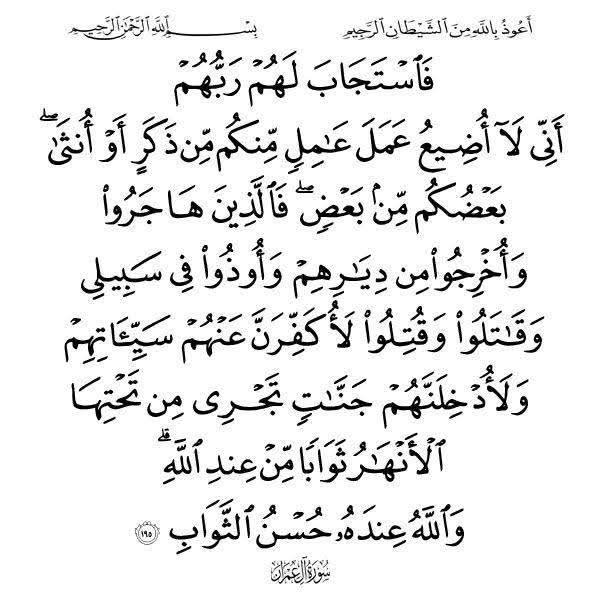 أَعُوذُ بِٱللَّهِ مِنَ ٱلشَّيْطَانِ ٱلرَّجِيمِ بِسْمِ ٱللَّهِ ٱلرَّحْمَٰنِ ٱلرَّحِيمِ
فَٱسْتَجَابَ لَهُمْ رَبُّهُمْ
أَنِّي لَآ أُضِيعُ عَمَلَ عَٰمِلٍ مِّنكُم مِّن ذَكَرٍ أَوْ أُنثَىٰ ۖ
بَعْضُكُم مِّنۢ بَعْضٍ ۖ فَٱلَّذِينَ هَاجَرُوا۟
وَأُخْرِجُوا۟ مِن دِيَٰرِهِمْ وَأُوذُوا۟ فِى سَبِيلِى
وَقَٰتَلُوا۟ وَقُتِلُوا۟ لَأُكَفِّرَنَّ عَنْهُمْ سَيِّـَٔاتِهِمْ
وَلَأُدْخِلَنَّهُمْ جَنَّٰتٍ تَجْرِى مِن تَحْتِهَا
ٱلْأَنْهَٰرُ ثَوَابًا مِّنْ عِندِ ٱللَّهِ ۗ
وَٱللَّهُ عِندَهُۥ حُسْنُ ٱلثَّوَابِ ١٩٥
سُورَةُ آلِ عِمْرَانَ